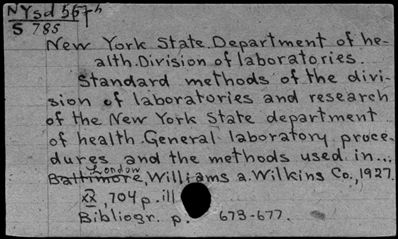 NYsd 557h
S 785
New York State. Department of he-
alth. Division of laboratories.
Standard methods of the divi-
sion of laboratories and research
of the New York State department
of health. General laboratory proce-
dures and the methods used in...
London
Baltimore, Williams a. Wilkins Co., 1927.
xx, 704 p. ill
Bibliogr. p. 673-677.